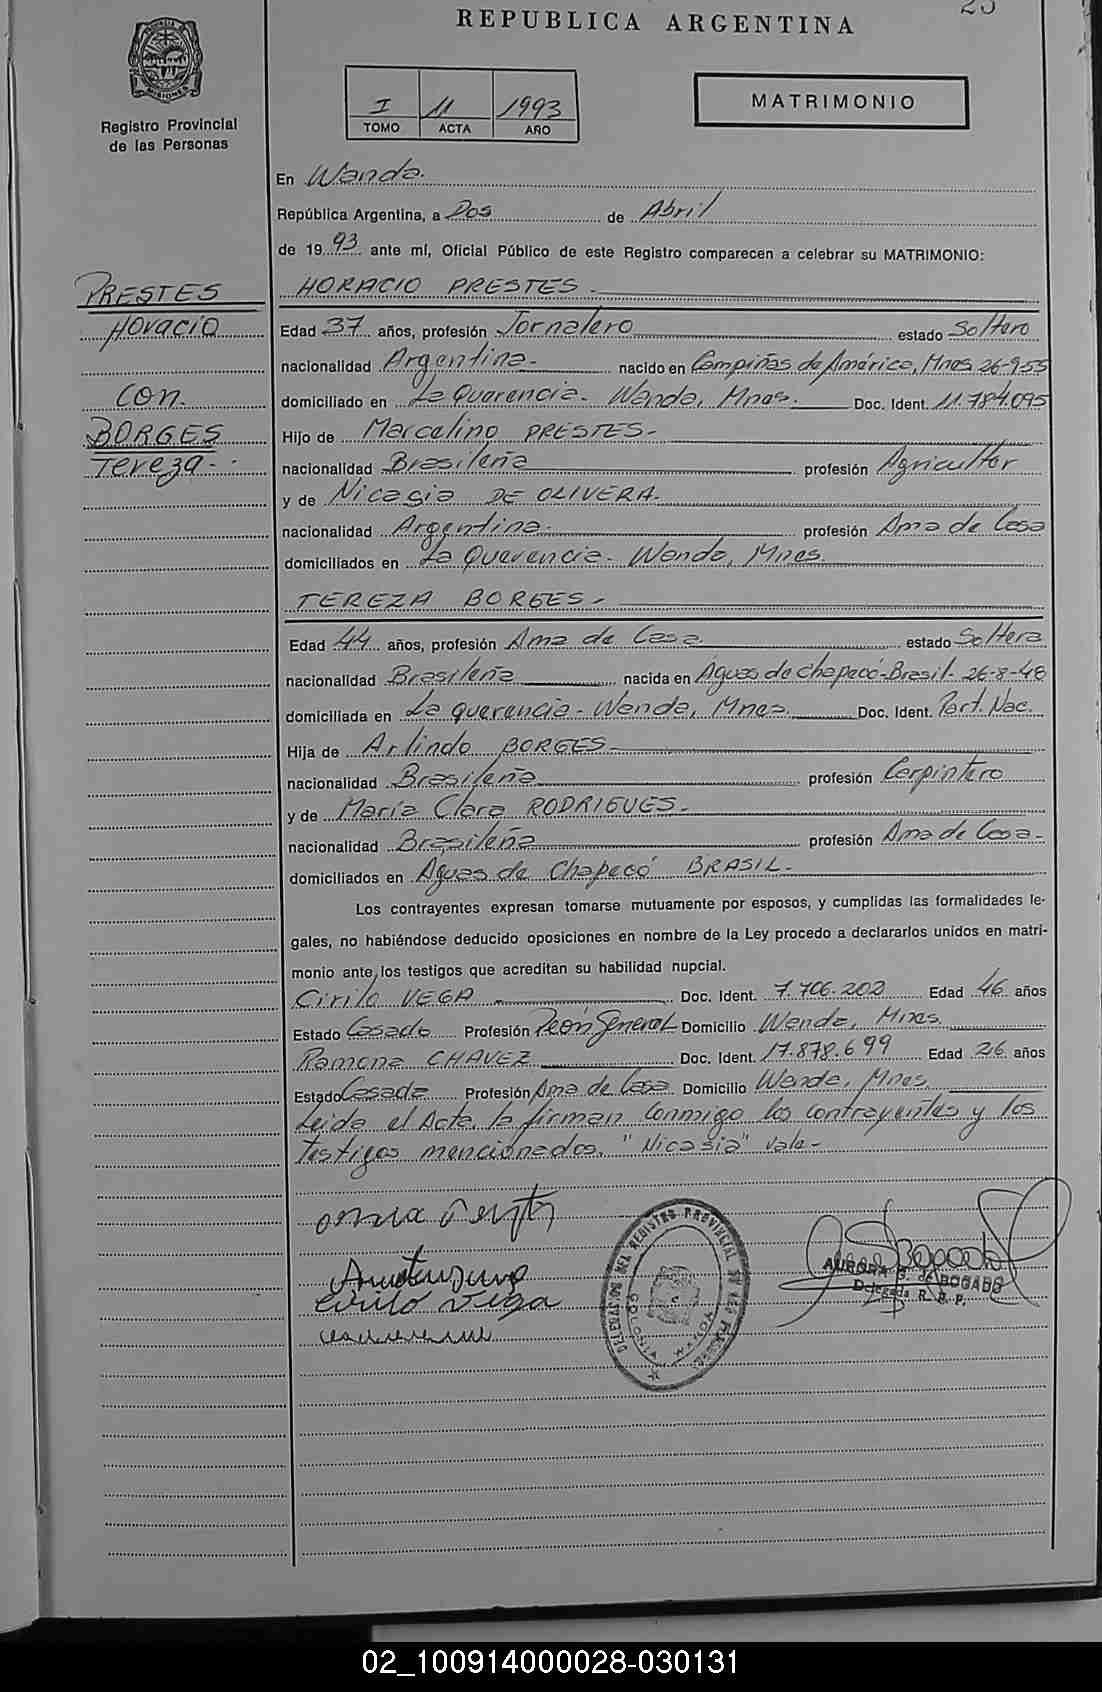 REPUBLICA ARGENTINA
25
PROVINCIA DE MISIONES
Registro Provincial
de las Personas
I 11 1993
TOMO ACTA AÑO
MATRIMONIO
En Wanda.
República Argentina, a Dos de Abril
de 19 93 ante mí, Oficial Público de este Registro comparecen a celebrar su MATRIMONIO:
PRESTES
Horacio
con.
BORGES
Tereza-
HORACIO PRESTES.
Edad 37 años, profesión Jornalero estado Soltero
nacionalidad Argentina- nacido en Campiñas de América, Mnes 26-9-55
domiciliado en La Querencia- Wanda, Mnes. Doc. Ident. 11.784.095
Hijo de Marcelino PRESTES-
nacionalidad Brasileña profesión Agricultor
y de Nicasia DE OLIVERA.
nacionalidad Argentina- profesión Ama de Casa
domiciliados en La Querencia- Wanda, Mnes.
TEREZA BORGES-
Edad 44 años, profesión Ama de Casa estado Soltera
nacionalidad Brasileña nacida en Aguas de Chapecó-Brasil- 26-8-48
domiciliada en La querencia- Wanda, Mnes. Doc. Ident. Part. Nac.
Hija de Arlindo BORGES-
nacionalidad Brasileña profesión Carpintero
y de María Clara RODRIGUES-
nacionalidad Brasileña profesión Ama de Casa-
domiciliados en Aguas de Chapecó BRASIL-
Los contrayentes expresan tomarse mutuamente por esposos, y cumplidas las formalidades le-
gales, no habiéndose deducido oposiciones en nombre de la Ley procedo a declararlos unidos en matri-
monio ante los testigos que acreditan su habilidad nupcial.
Cirilo VEGA Doc. Ident. 7.706.202 Edad 46 años
Estado Casado Profesión Peón General Domicilio Wanda, Mnes.
Ramona CHAVEZ Doc. Ident. 17.878.699 Edad 26 años
Estado Casada Profesión Ama de Casa Domicilio Wanda, Mnes.
Leida el Acta, la firman conmigo los contrayentes y los
testigos mencionados. "Nicasia" Vale-
Cirilo Vega
AURORA G. de BOGADO
Delegada R. P. P.
02_100914000028-030131